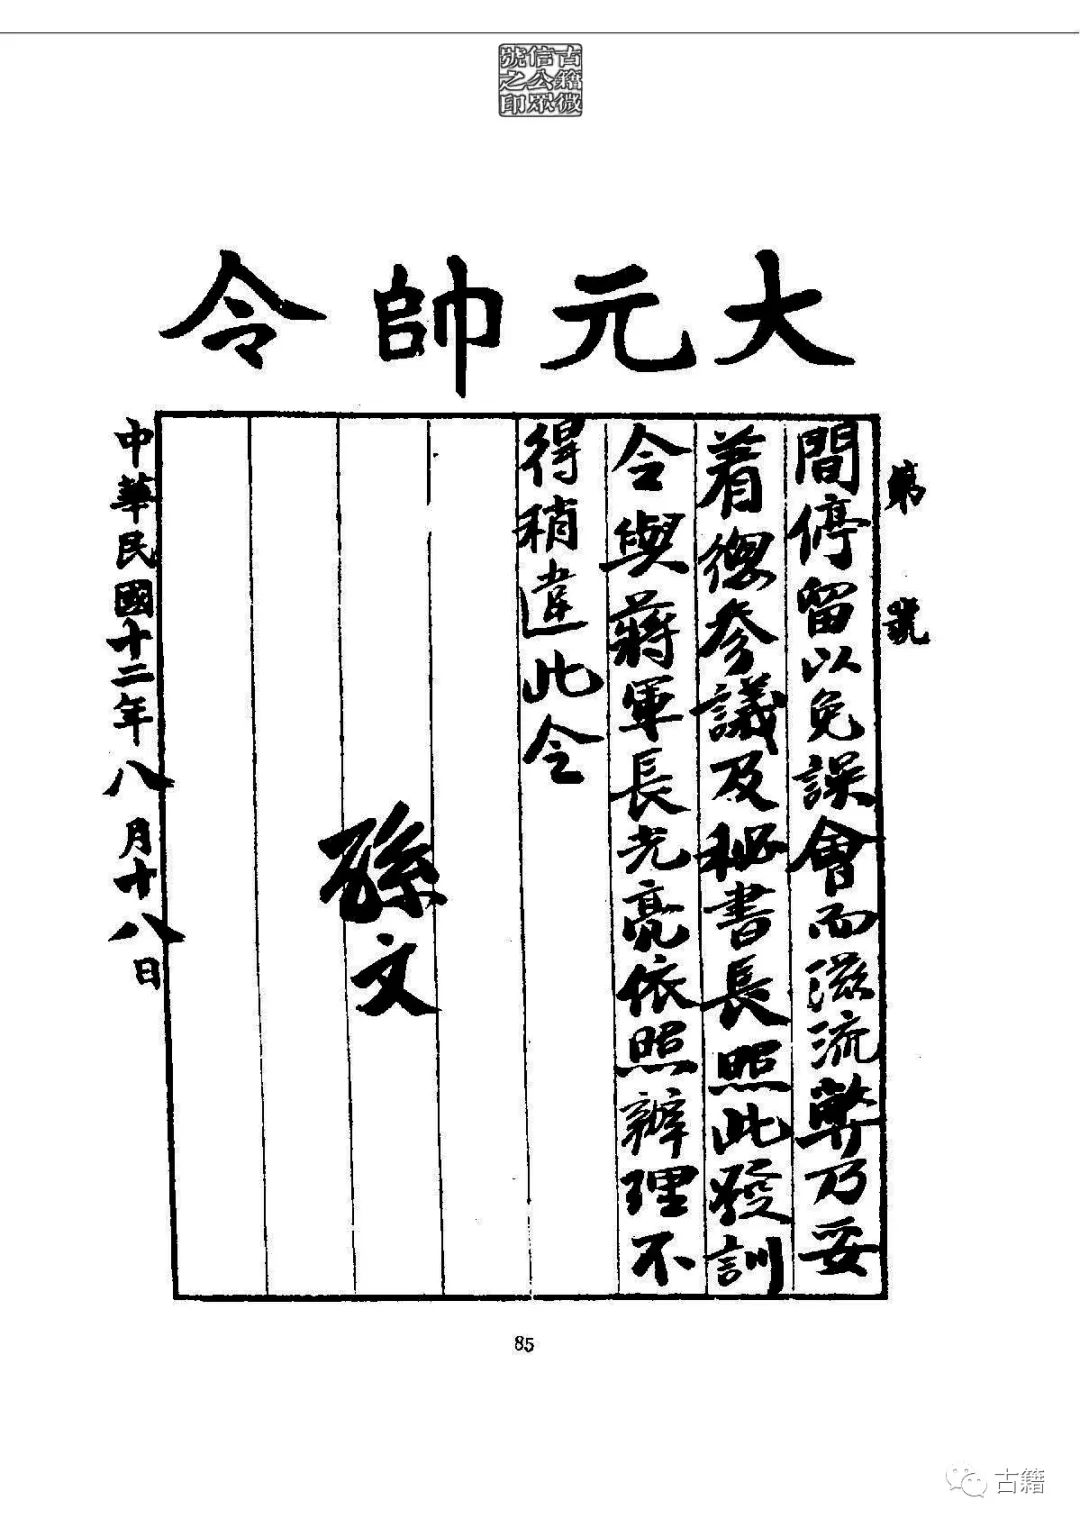 古籍微
信公眾
號之印
大元帥令
第 號
間停留以免誤會而滋流弊乃妥
着總參議及秘書長照此發訓
令與蔣軍長光亮依照辦理不
得稍違此令
孫文
中華民國十二年八月十八日
85
古籍